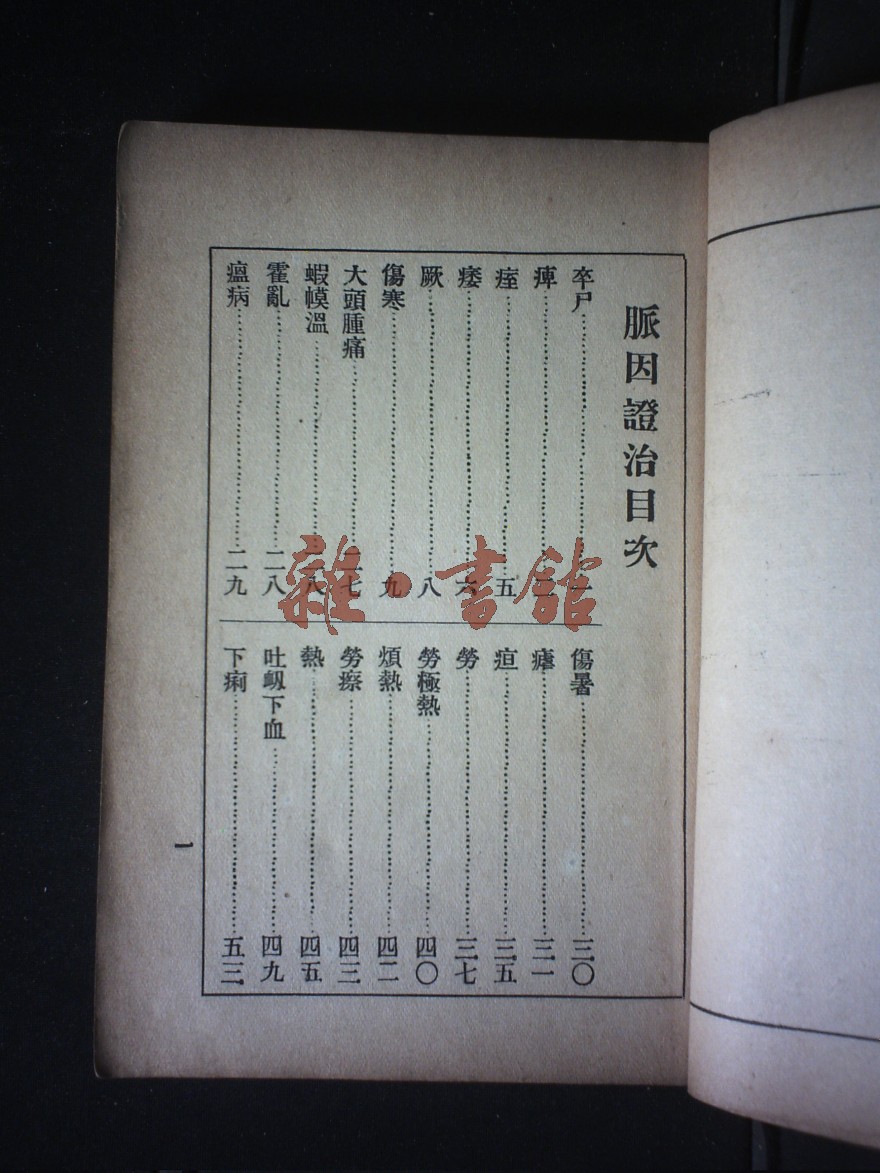 脈因證治目次
卒尸……一
痺……
痓……五
痿……六
厥……八
傷寒……九
大頭腫痛……二七
蝦幙溫……二八
霍亂……二八
瘟病……二九
傷暑……三〇
瘧……三一
疸……三五
勞……三七
勞極熱……四〇
煩熱……四二
勞瘵……四三
熱……四五
吐衂下血……四九
下痢……五三
1
雜·書館